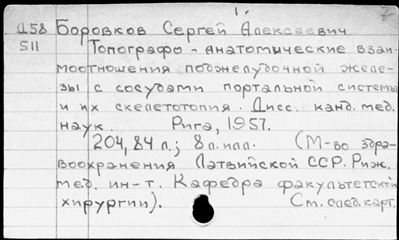 Д58 Боровков Сергей Алексеевич
511 Топографо-анатомические взаи-
моотношения поджелудочной желе-
зы с сосудами портальной системы
и их скелетотопия. Дисс. канд. мед.
наук. Рига, 1957.
204, 84 л.; 8 л. илл. (М-во здра-
воохранения Латвийской ССР. Риж.
мед. ин-т. Кафедра факультетской
хирургии). См. след. карт.